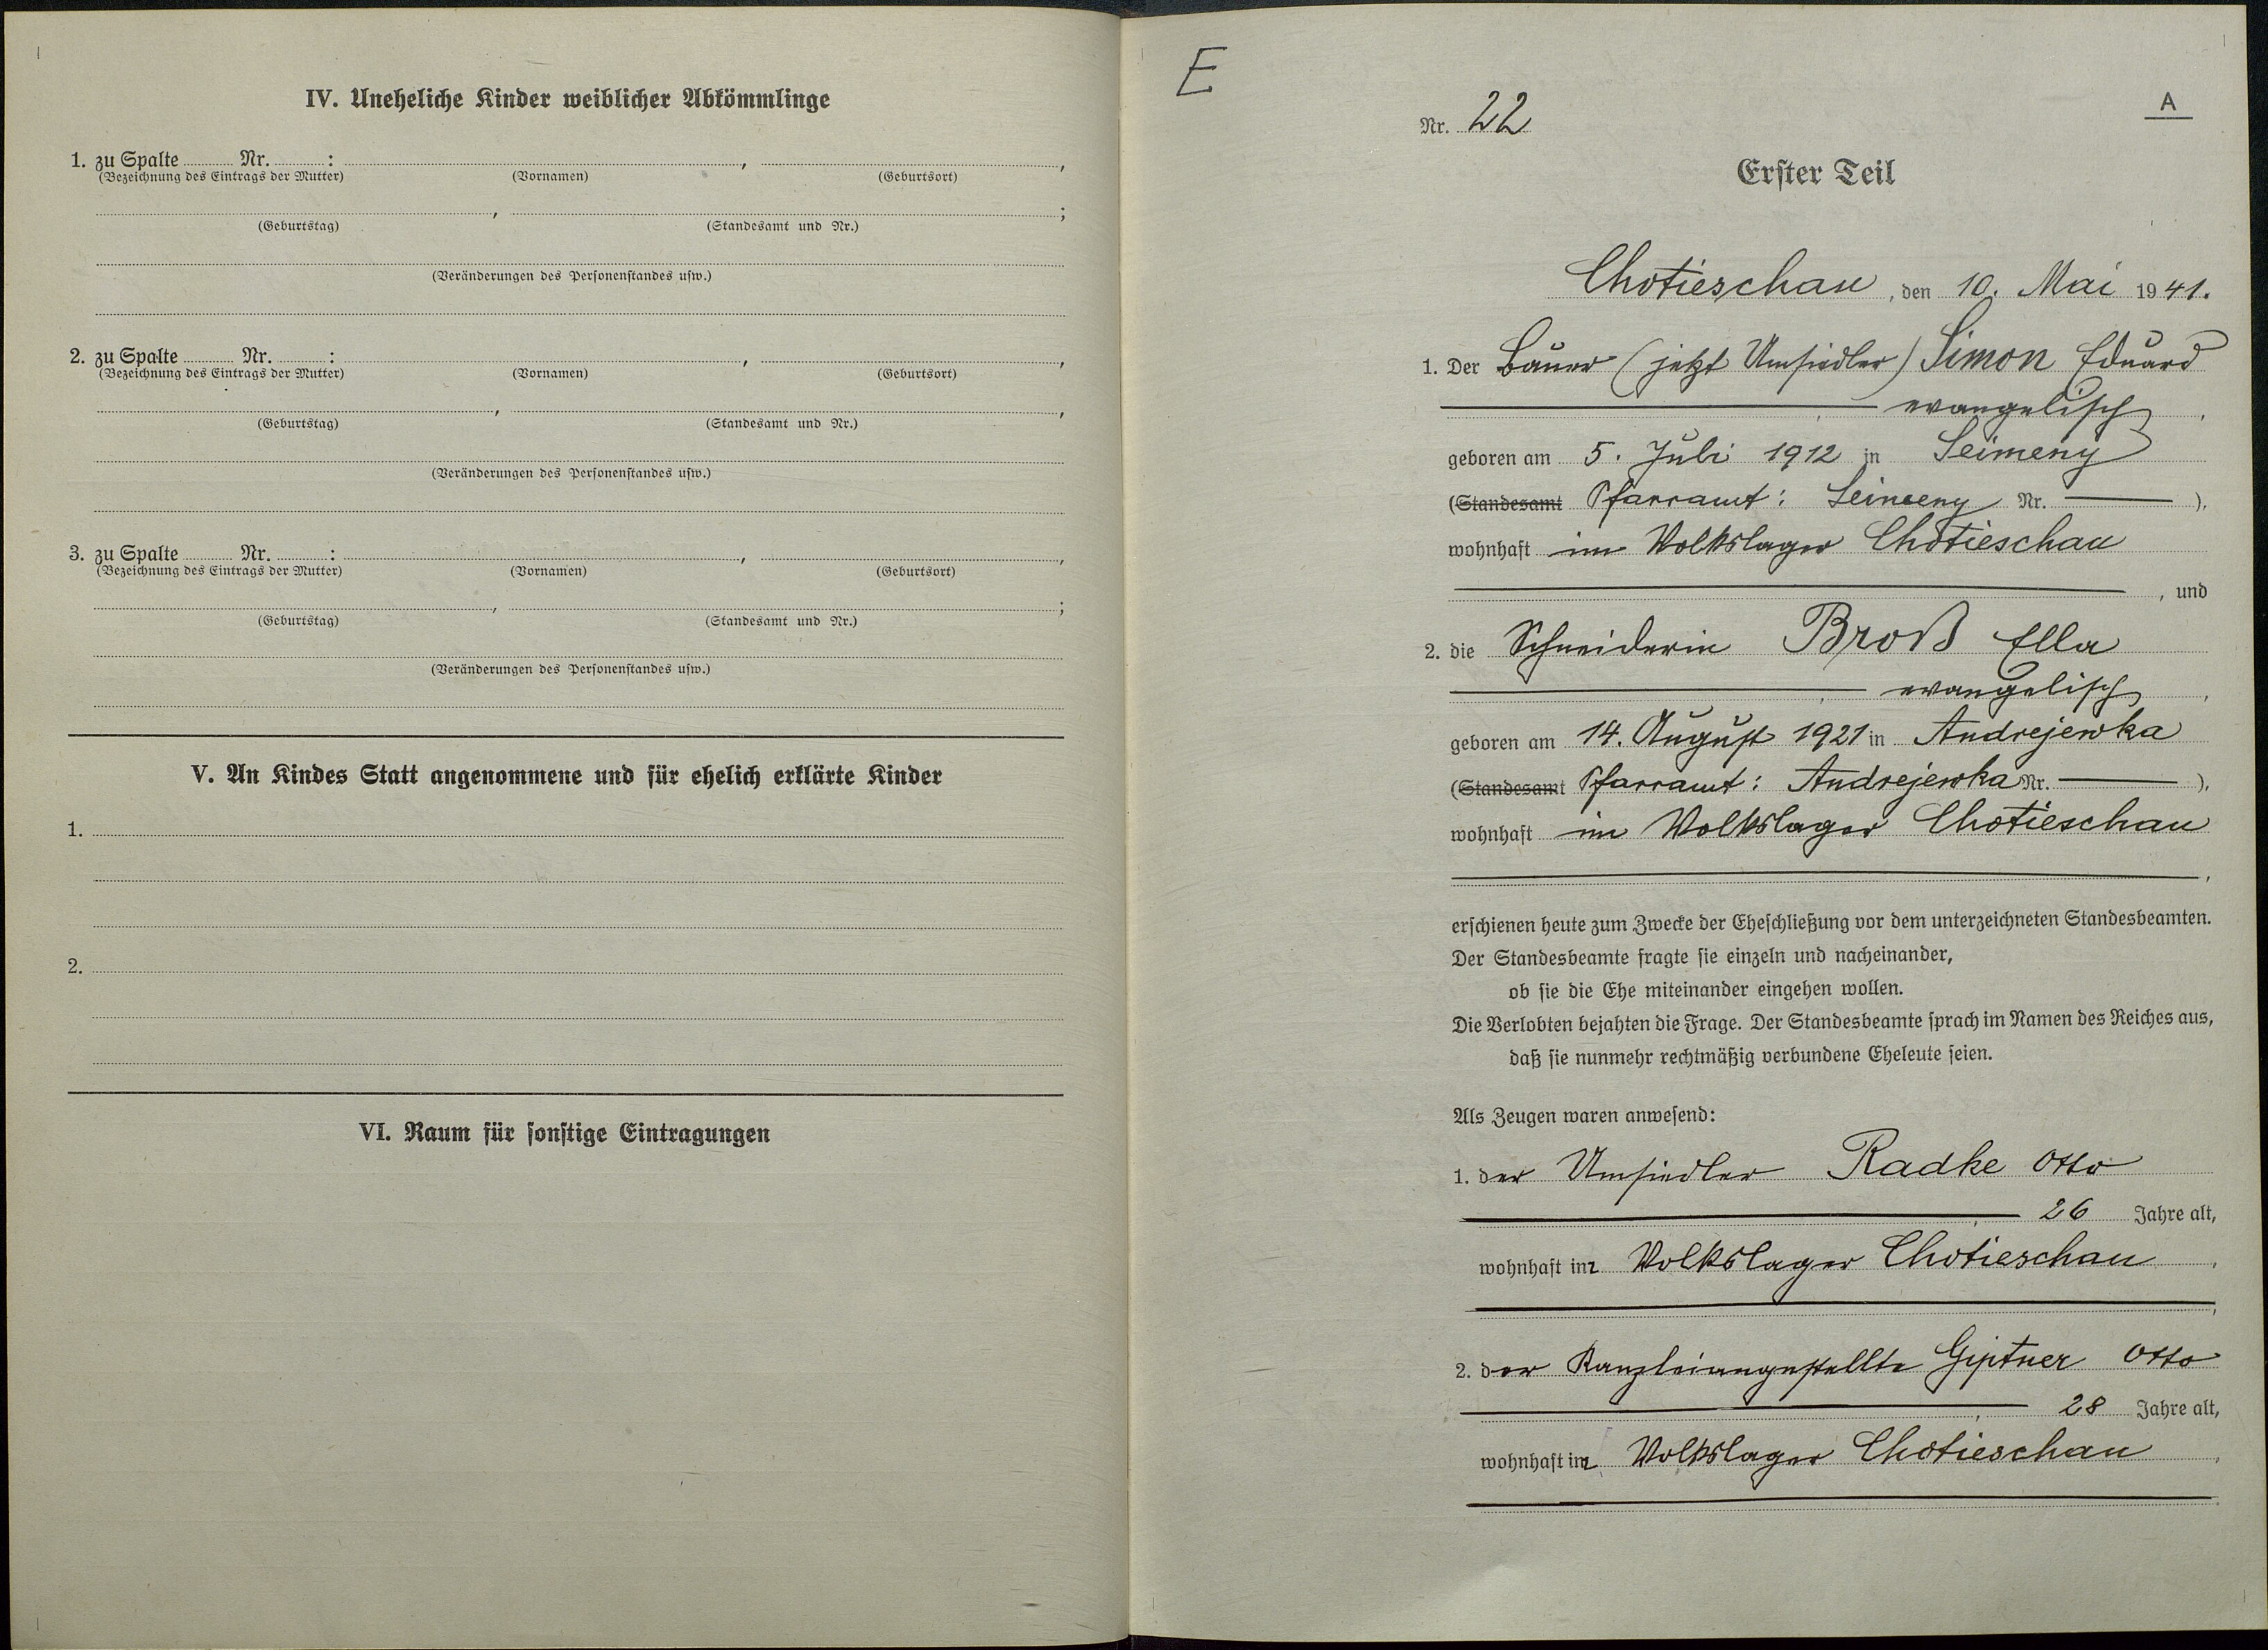 IV. Uneheliche Kinder weiblicher Abkömmlinge
1. zu Spalte ........ Nr. ........ : ........, ........,
(Bezeichnung des Eintrags der Mutter) (Vornamen) (Geburtsort)
........, ........;
(Geburtstag) (Standesamt und Nr.)
(Veränderungen des Personenstandes usw.)
2. zu Spalte ........ Nr. ........ : ........, ........,
(Bezeichnung des Eintrags der Mutter) (Vornamen) (Geburtsort)
........, ........,
(Geburtstag) (Standesamt und Nr.)
(Veränderungen des Personenstandes usw.)
3. zu Spalte ........ Nr. ........ : ........, ........,
(Bezeichnung des Eintrags der Mutter) (Vornamen) (Geburtsort)
........, ........;
(Geburtstag) (Standesamt und Nr.)
(Veränderungen des Personenstandes usw.)
V. An Kindes Statt angenommene und für ehelich erklärte Kinder
1.
2.
VI. Raum für sonstige Eintragungen
E
A
Nr. 22
Erster Teil
Chotieschau, den 10. Mai 1941.
1. Der Bauer (jetzt Umsiedler) Simon Eduard
evangelisch,
geboren am 5. Juli 1912 in Seimeny
(Standesamt Pfarramt: Seimeny Nr. ——),
wohnhaft im Volkslager Chotieschau
, und
2. die Schneiderin Broß Ella
evangelisch,
geboren am 14. August 1921 in Andrejewka
(Standesamt Pfarramt: Andrejewka Nr. ——),
wohnhaft im Volkslager Chotieschau
,
erschienen heute zum Zwecke der Eheschließung vor dem unterzeichneten Standesbeamten.
Der Standesbeamte fragte sie einzeln und nacheinander,
ob sie die Ehe miteinander eingehen wollen.
Die Verlobten bejahten die Frage. Der Standesbeamte sprach im Namen des Reiches aus,
daß sie nunmehr rechtmäßig verbundene Eheleute seien.
Als Zeugen waren anwesend:
1. der Umsiedler Radke Otto
26 Jahre alt,
wohnhaft im Volkslager Chotieschau,
2. der Kanzleiangestellte Giptner Otto
28 Jahre alt,
wohnhaft im Volkslager Chotieschau,